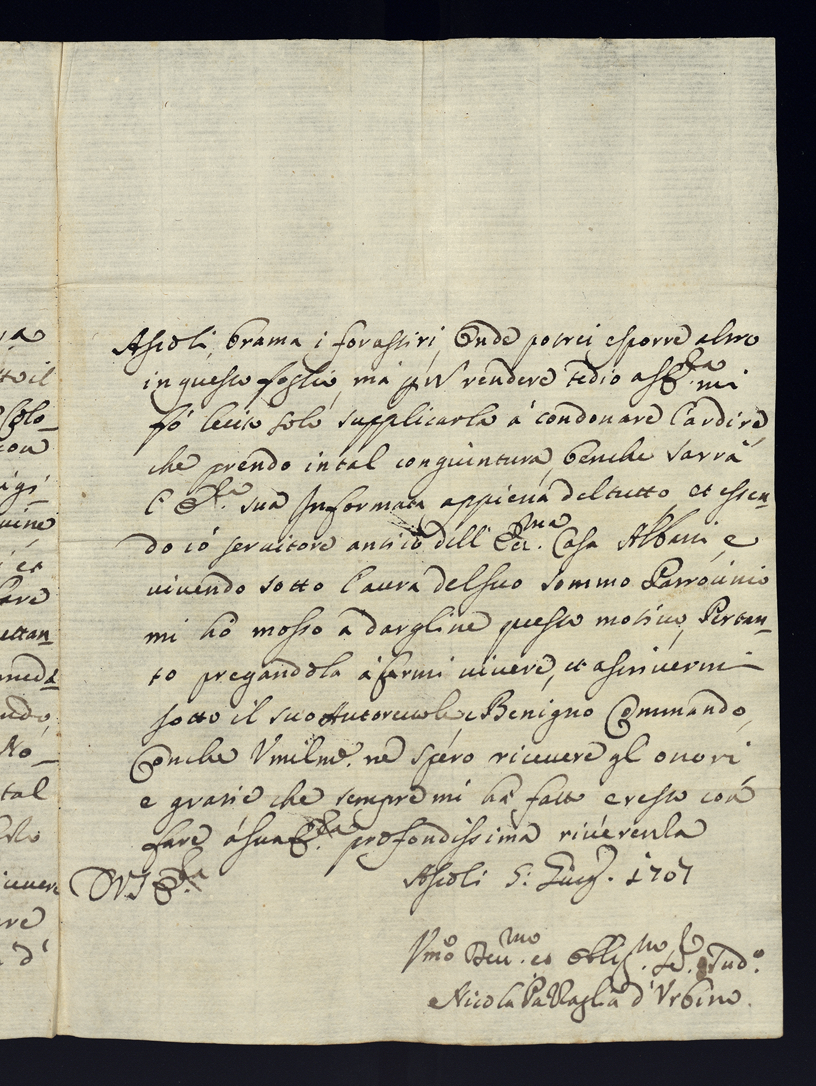 Ascoli, brama i forastiri, Onde potrei esporre altro
in questo foglio, ma p non rendere tedio a S. E.za mi
fò lecito solo supplicarla à condonare l'ardire,
che prendo in tal congiuntura, benche sarrà
l'E.za sua Informata appiena del tutto, et essen-
do iò servitore antico dell' Ecc.ma Casa Albani, e
vivendo sotto l'aura del suo sommo Patrocinio
mi hò mosso à dargline questo motivo, Pertan-
to pregandola à farmi vivere, et ascrivermi
sotto il suo Autorevole, e Benigno Commando,
Conche Vmilme. ne spero ricevere gl'onori
e grazie che sempre mi hà fatto e resto con
fare à sua E.za profondissima riverenza
D V S E.za
Ascoli 5: Giug. 1707
Vmo Dev.mo et Oblig.mo Se.
Nicola d'Vrbino.
ra
tto il
Glo-
con
igi-
et
are
ettan-
do,
No-
tal
vere
re
d'